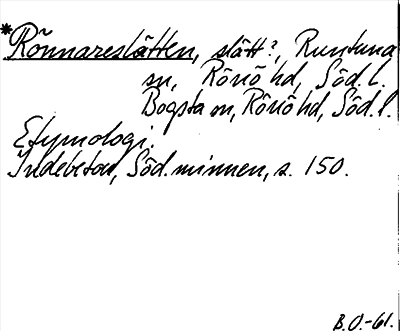 *Rönnareslätten, slätt?, Runtuna
sn, Rönö hd, Söd. l.
Bogsta sn, Rönö hd, Söd. l.
Etymologi.
Indebetou, Söd. minnen, s. 150.
B.O.-61.